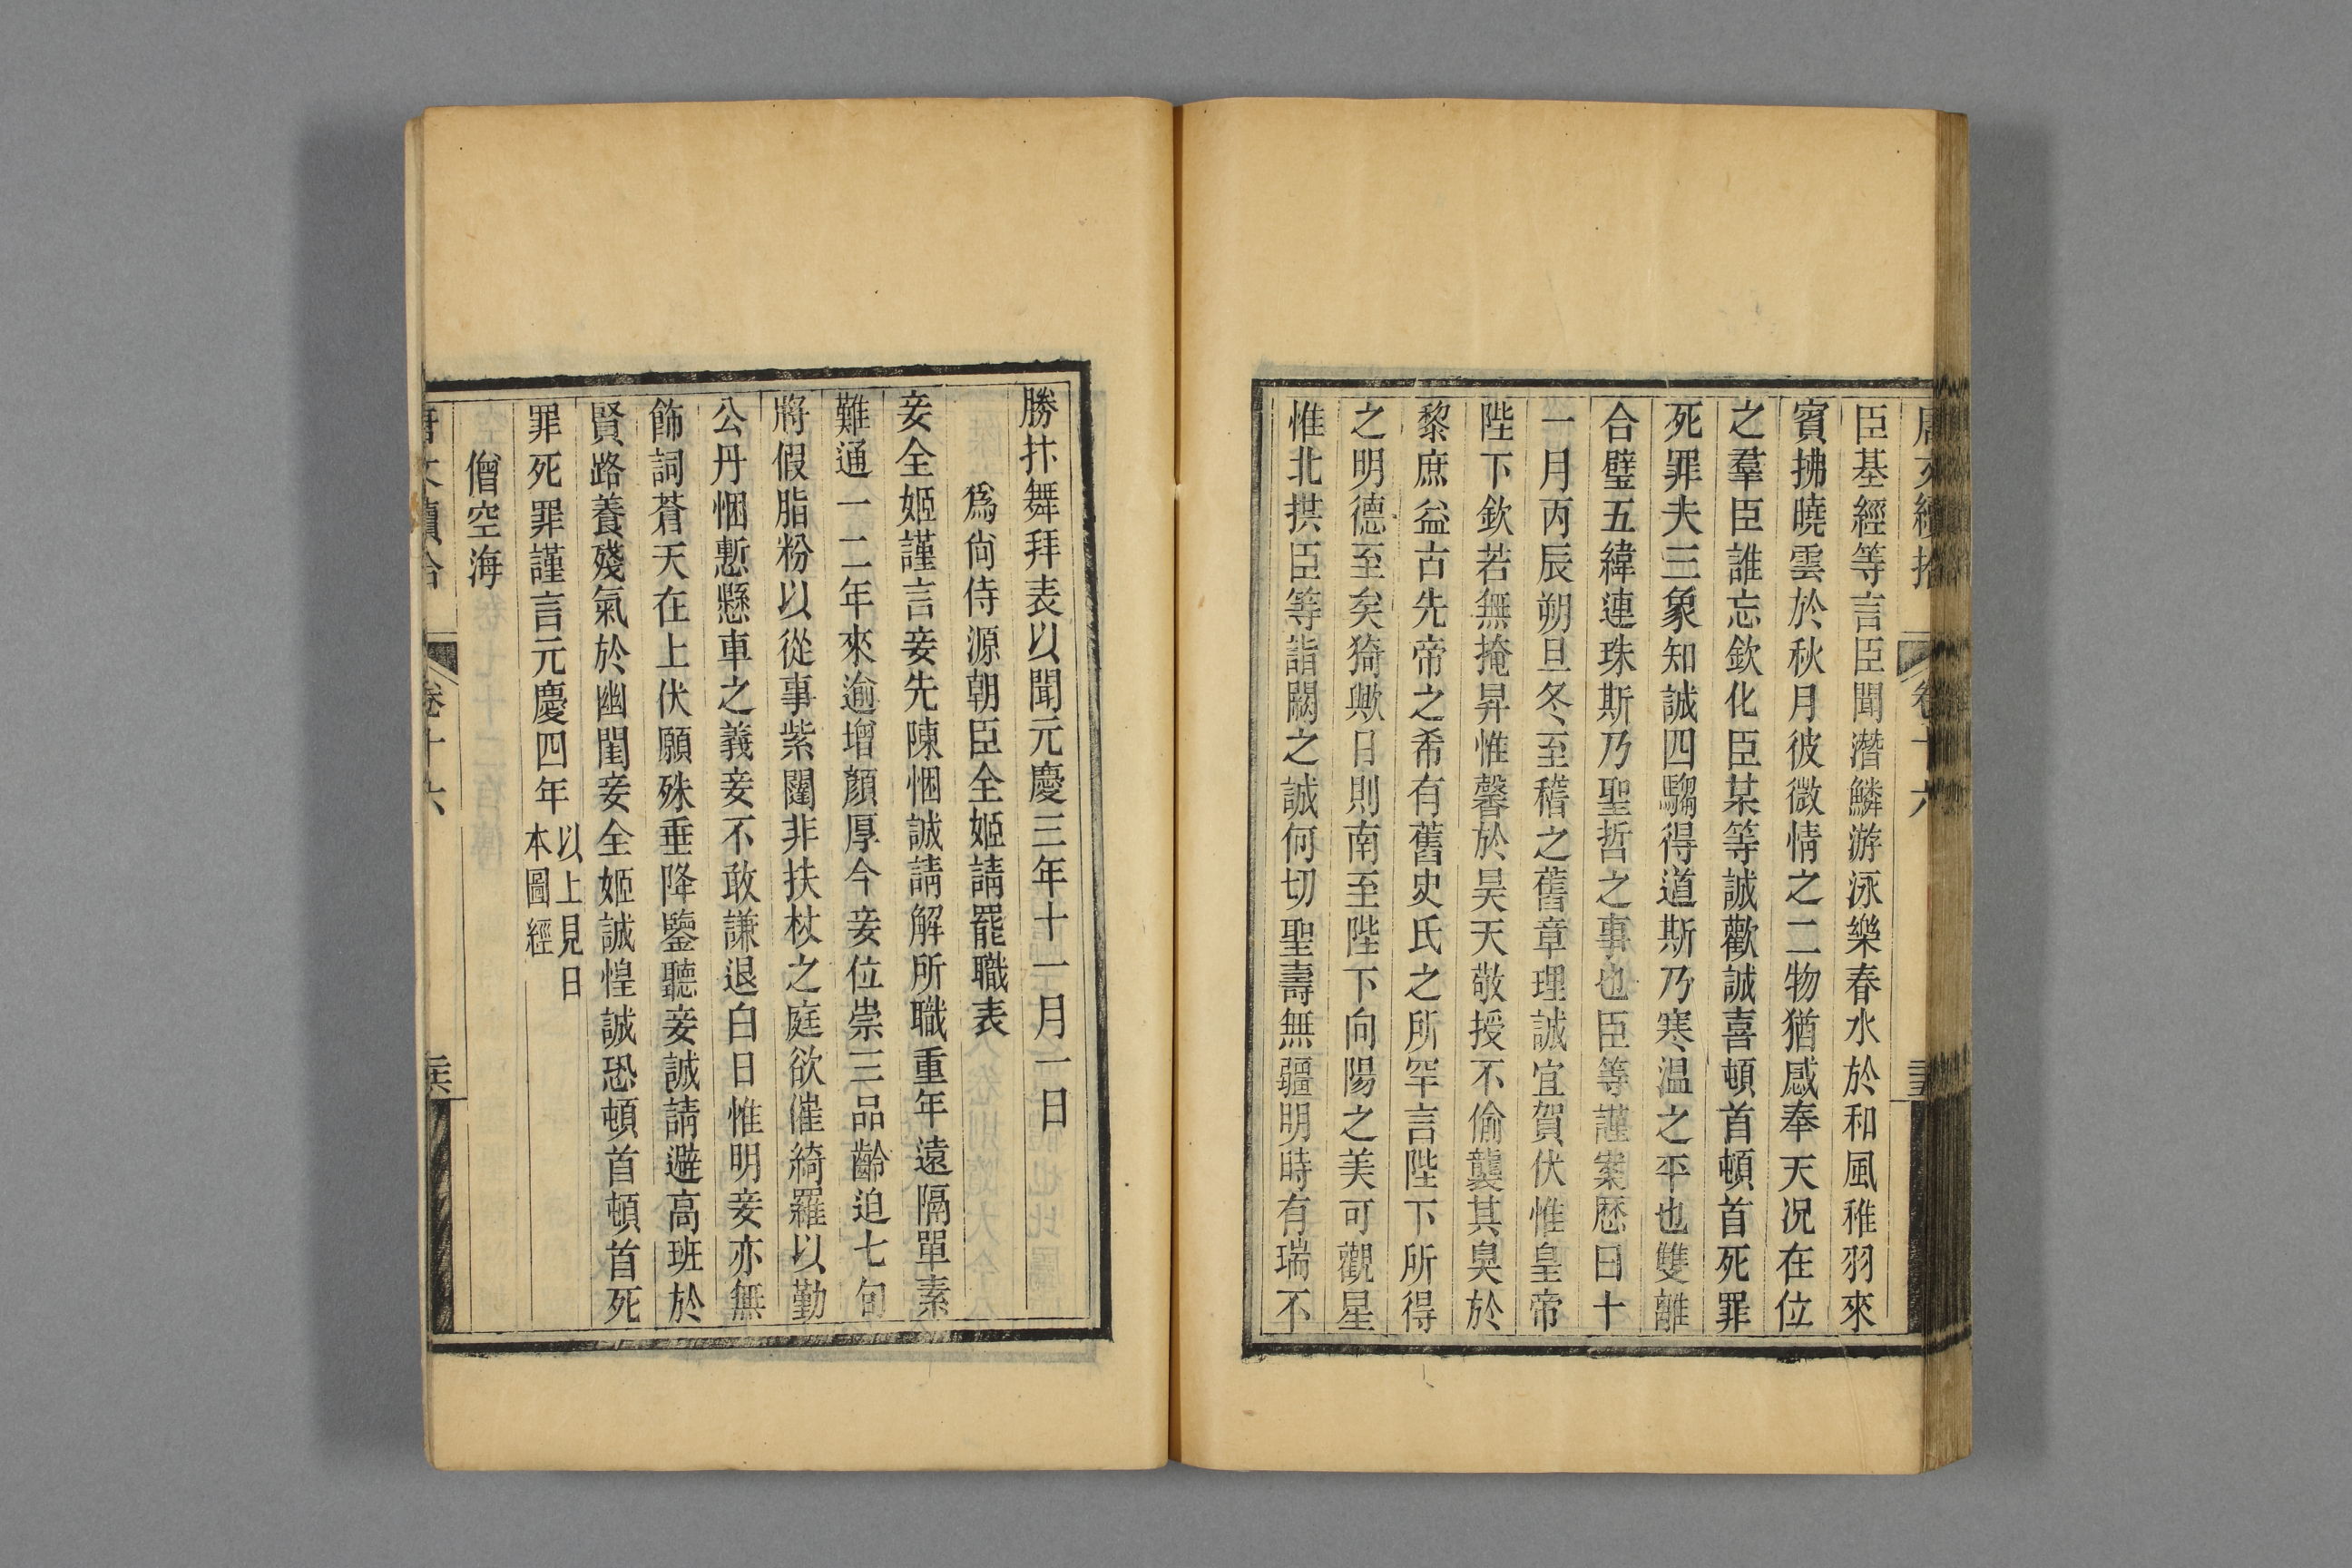 臣基經等言臣聞潛鱗游泳樂春水於和風稚羽來
賓拂曉雲於秋月彼微情之二物猶感奉天況在位
之羣臣誰忘欽化臣某等誠歡誠喜頓首頓首死罪
死罪夫三象知誠四騶得道斯乃寒温之平也雙離
合璧五緯連珠斯乃聖哲之事也臣等謹案歴曰十
一月丙辰朔旦冬至稽之舊章理誠宜賀伏惟皇帝
陛下欽若無掩昇惟馨於昊天敬授不偷襲其臭於
黎庶益古先帝之希有舊史氏之所罕言陛下所得
之明德至矣猗歟日則南至陛下向陽之美可觀星
惟北拱臣等詣闕之誠何切聖壽無疆明時有瑞不
勝抃舞拜表以聞元慶三年十一月一日
爲尙侍源朝臣全姬請罷職表
妾全姬謹言妾先陳悃誠請解所職重年遠隔單素
難通一二年來逾增顏厚今妾位崇三品齡迫七旬
將假脂粉以從事紫闥非扶杖之庭欲催綺羅以勤
公丹悃慙懸車之義妾不敢謙退白日惟明妾亦無
飾詞蒼天在上伏願殊垂降鑒聽妾誠請避高班於
賢路養殘氣於幽閨妾全姬誠惶誠恐頓首頓首死
罪死罪謹言元慶四年以上見日
本圖經
僧空海
卷十六